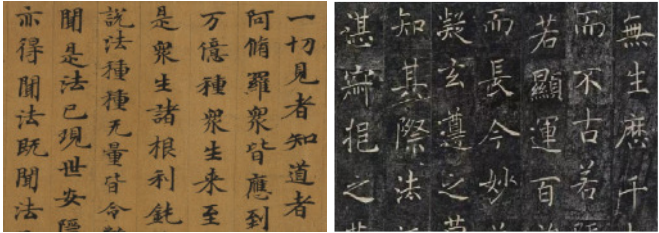 一切見者知道者
阿脩羅衆皆應到
万億種衆生来至
是衆生諸根利鈍
說法種種无量皆令
聞是法已現世安隱
亦得聞法既聞法
無生歷千
而不古若
若顯運百
而長今妙
凝玄遵之莫
知其際法
湛寂挹之